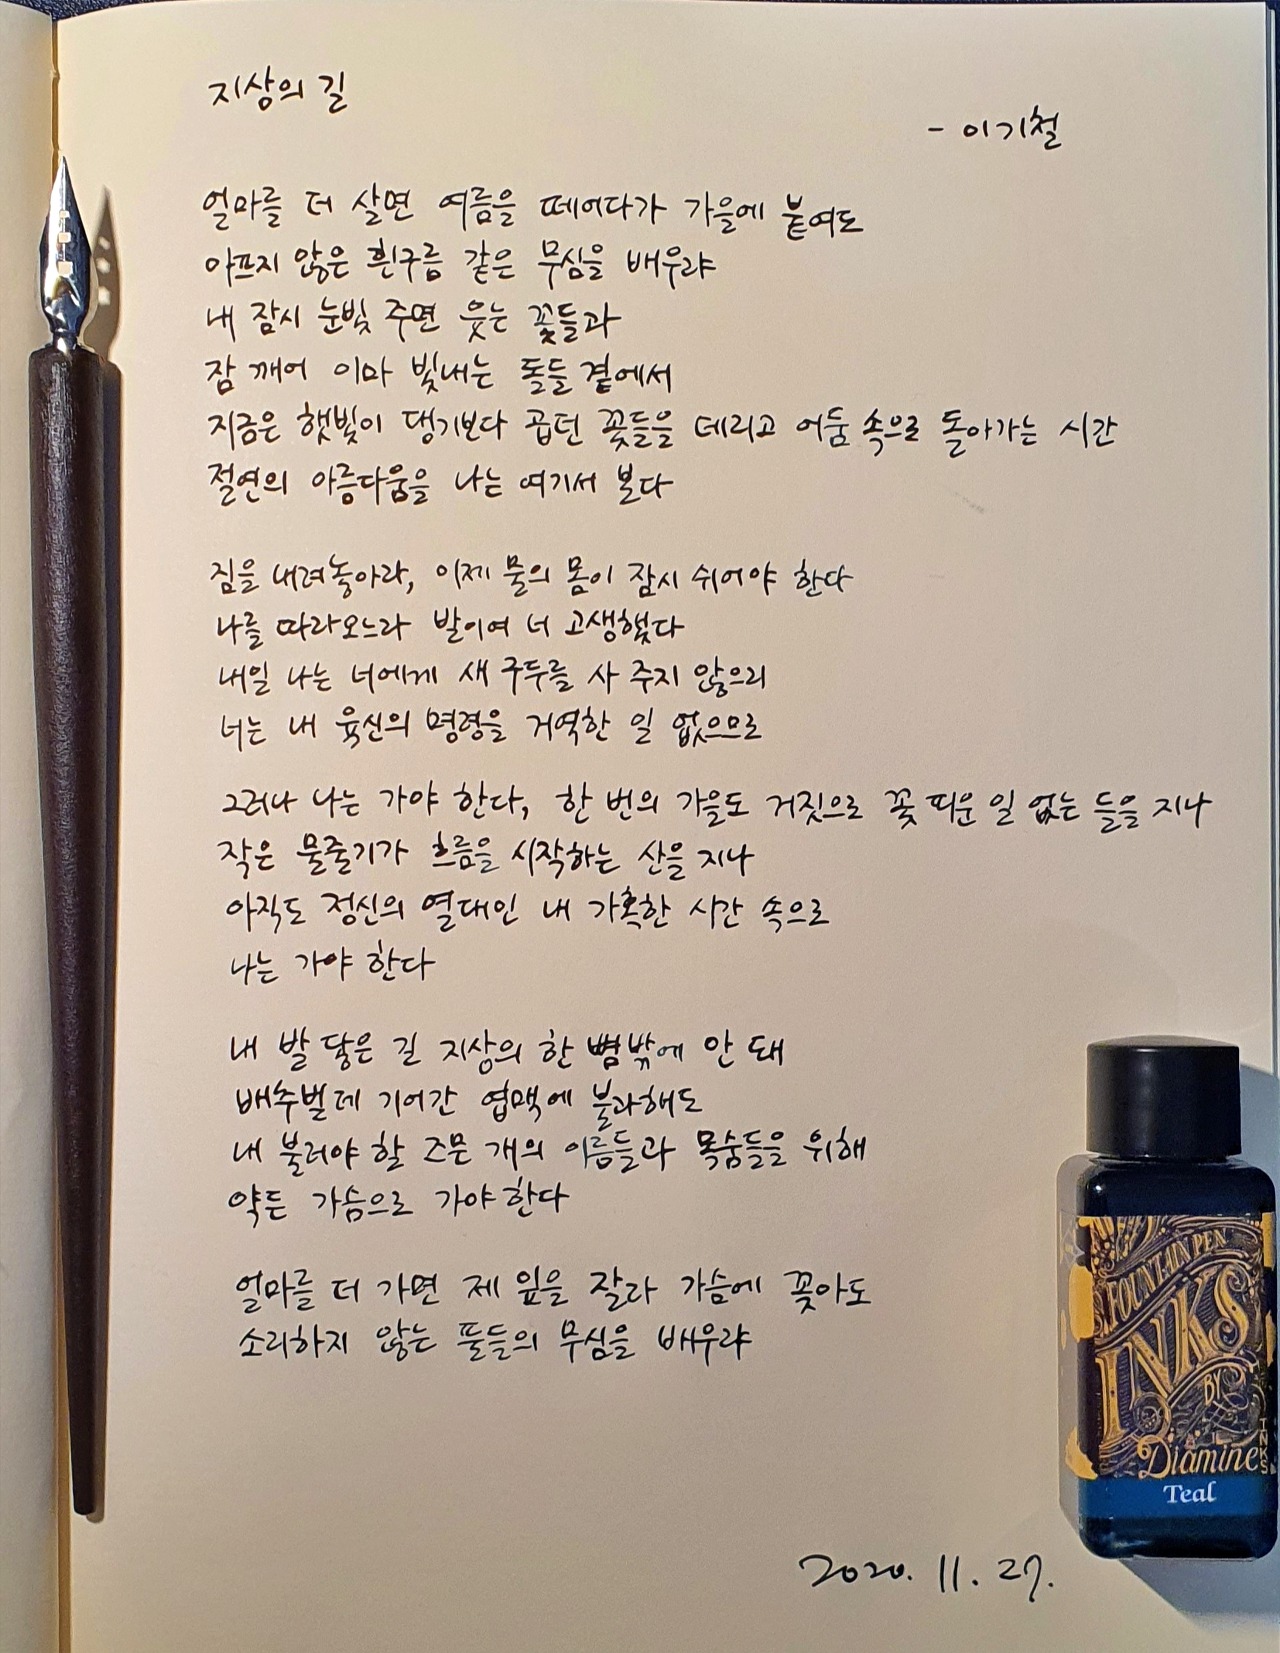 지상의 길
- 이기철
얼마를 더 살면 여름을 떼어다가 가을에 붙여도
아프지 않은 흰구름 같은 무심을 배우랴
내 잠시 눈빛 주면 웃는 꽃들과
잠 깨어 이마 빛내는 돌들 곁에서
지금은 햇빛이 댕기보다 곱던 꽃들을 데리고 어둠 속으로 돌아가는 시간
절연의 아름다움을 나는 여기서 본다
짐을 내려놓아라, 이제 물의 몸이 잠시 쉬어야 한다
나를 따라오느라 발이여 너 고생했다
내일 나는 너에게 새 구두를 사 주지 않으리
너는 내 육신의 명령을 거역한 일 없으므로
그러나 나는 가야 한다, 한 번의 가을도 거짓으로 꽃 피운 일 없는 들을 지나
작은 물줄기가 흐름을 시작하는 산을 지나
아직도 정신의 열대인 내 가혹한 시간 속으로
나는 가야 한다
내 발 닿은 길 지상의 한 뼘밖에 안 돼
배추벌레 기어간 엽맥에 불과해도
내 불러야 할 즈믄 개의 이름들과 목숨들을 위해
약든 가슴으로 가야 한다
얼마를 더 가면 제 잎을 잘라 가슴에 꽂아도
소리하지 않는 풀들의 무심을 배우랴
2020. 11. 27.
FOUNTAIN PEN
INKS
BY
Diamine
INKS
Teal